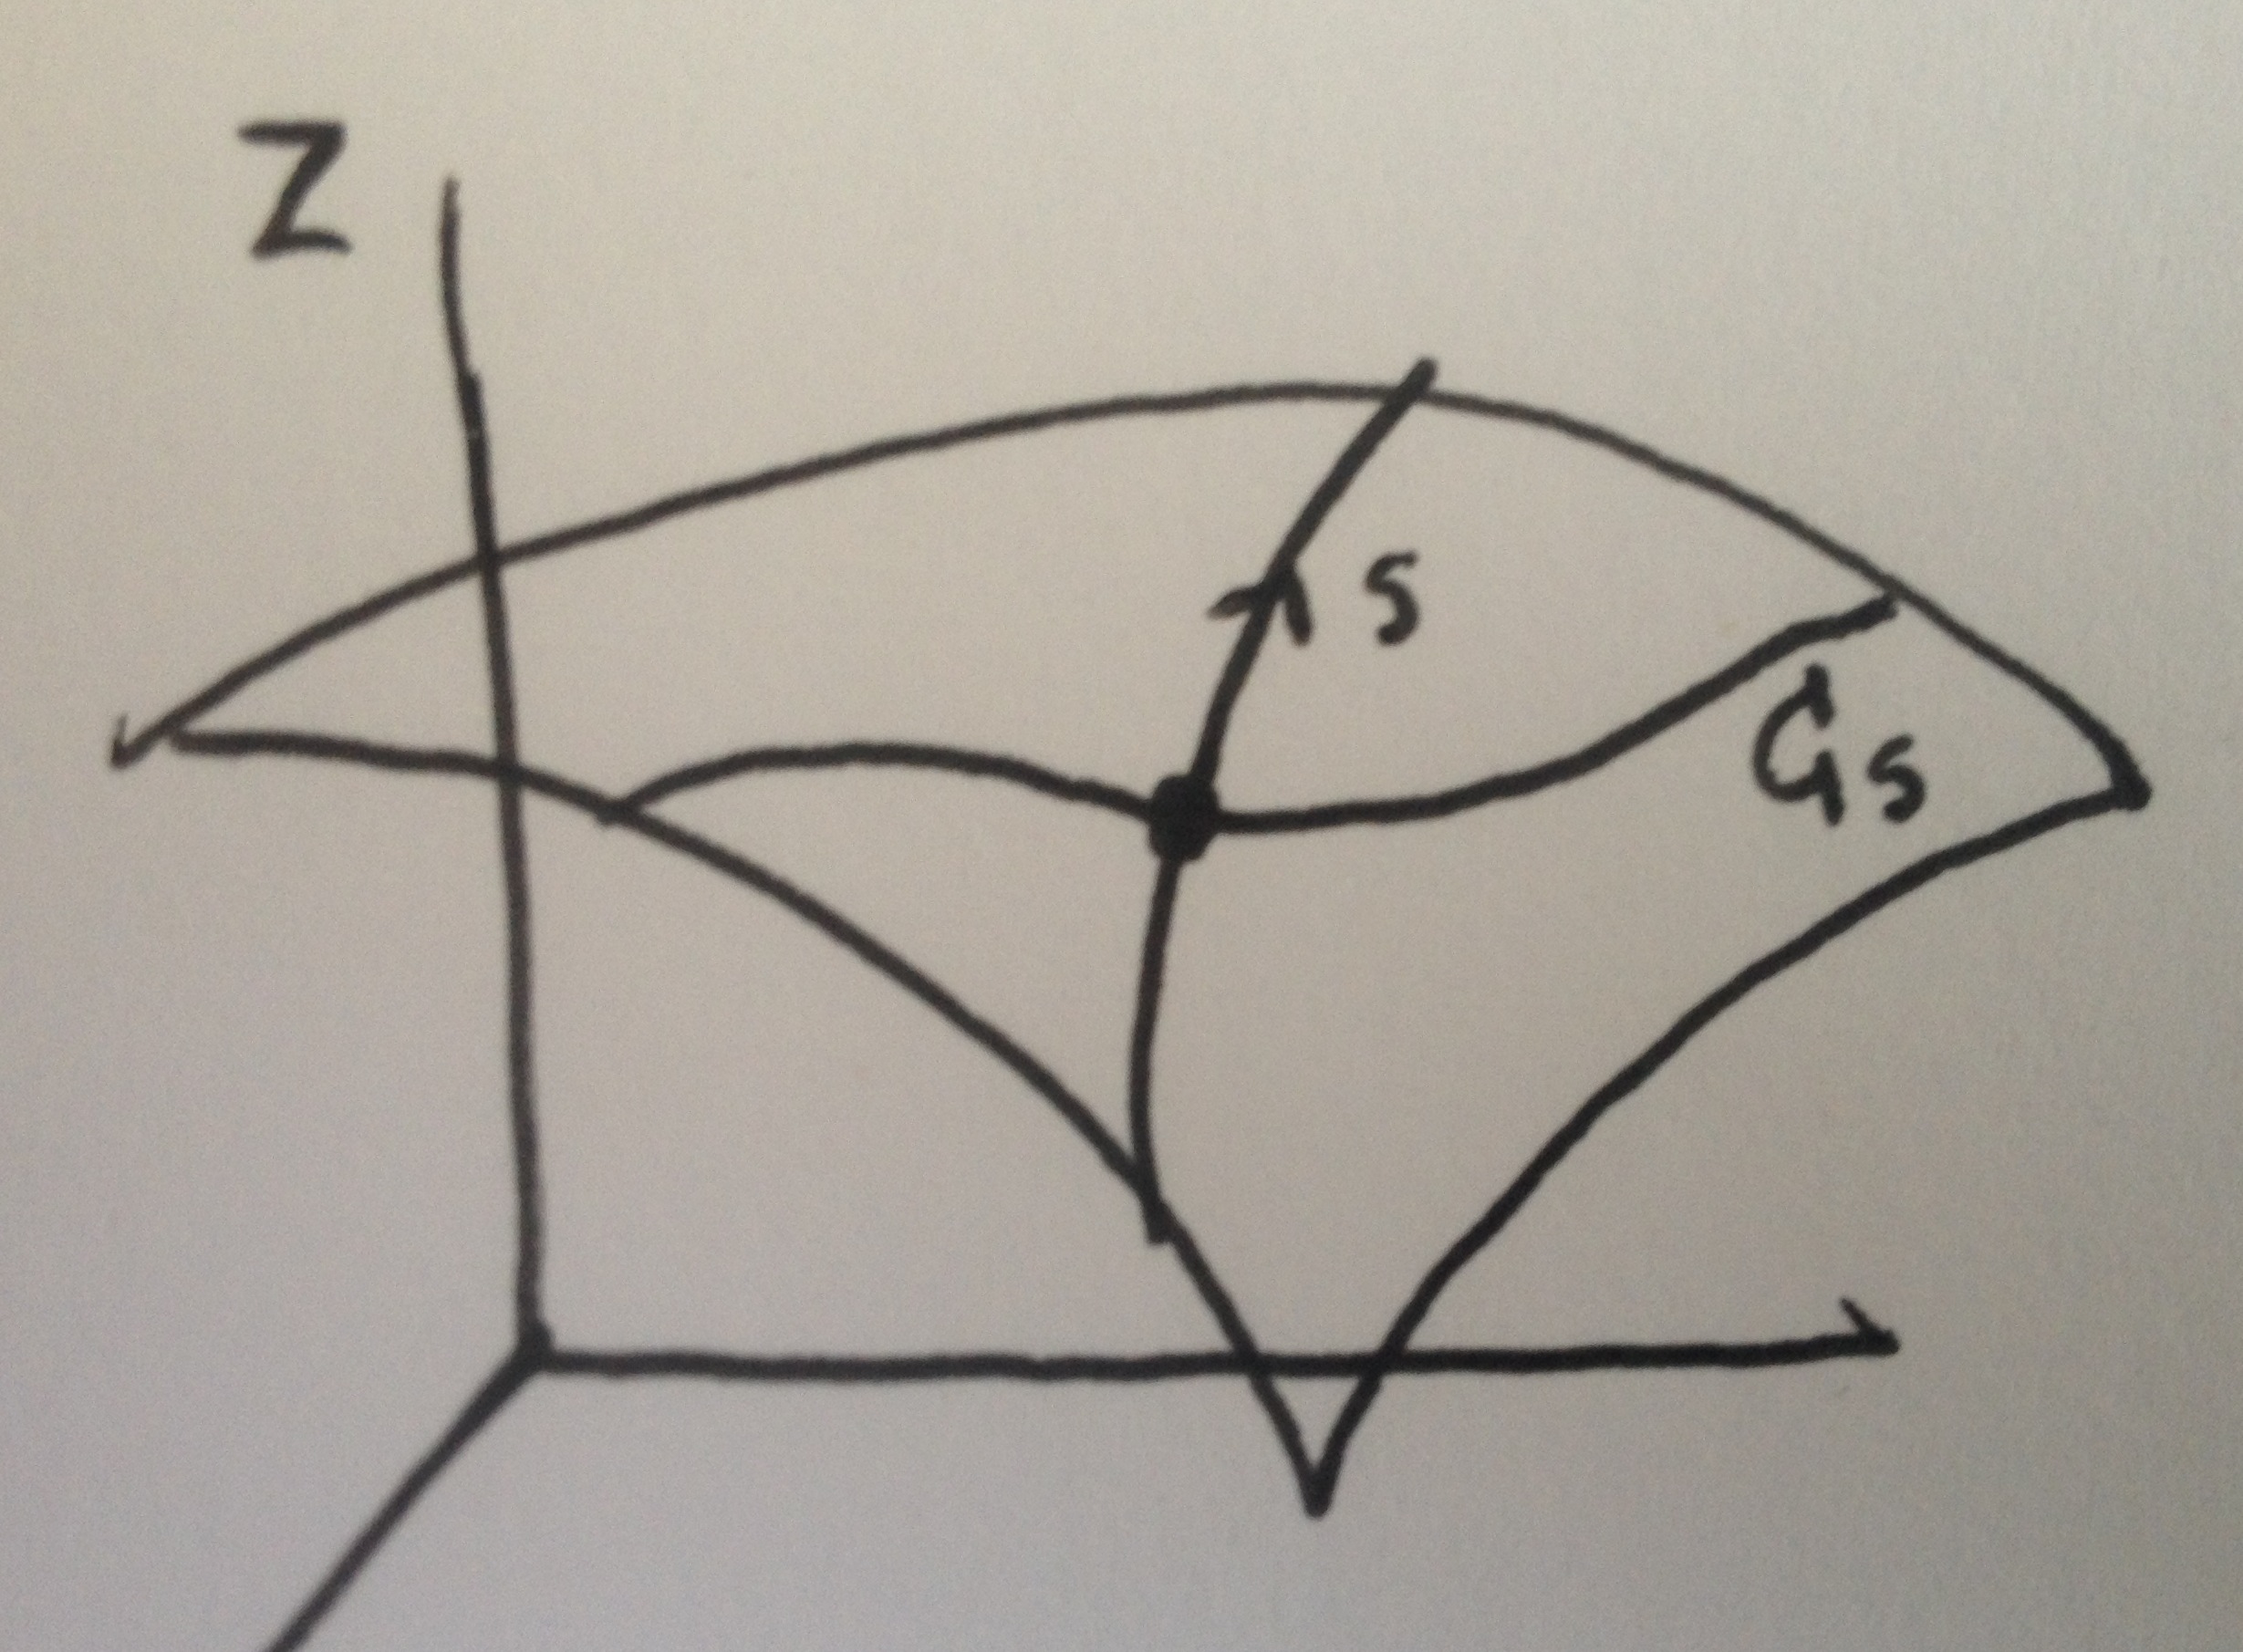 Z
s
Gs